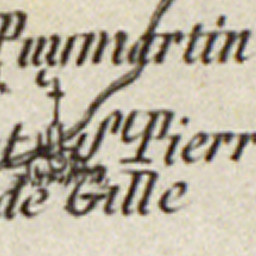 Puymartin
St Pierr
de Gille